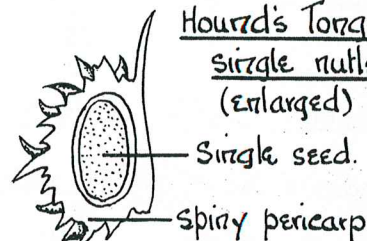 Hound's Tong
single nutl
(enlarged)
Single seed.
spiny pericarp